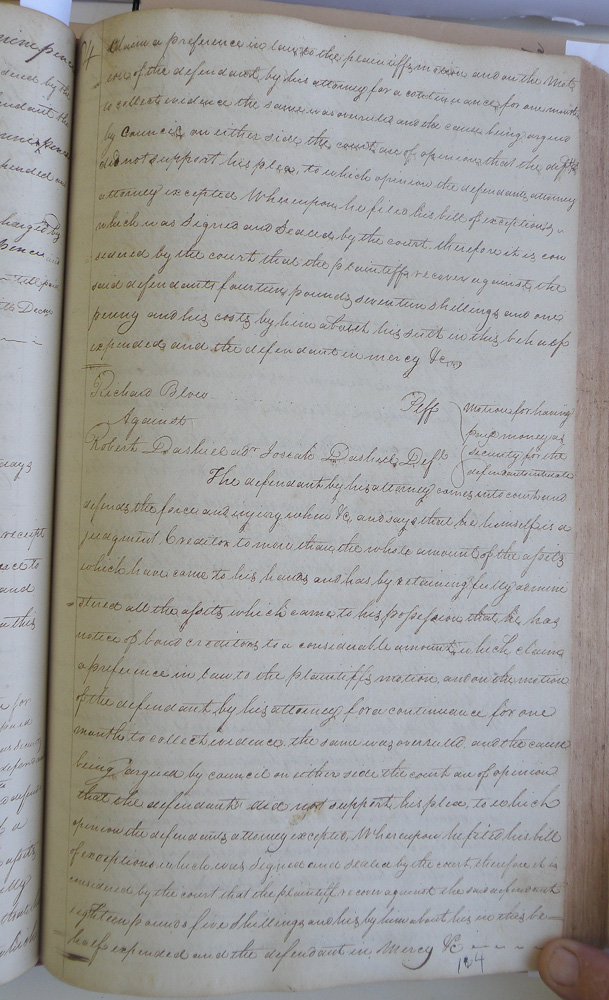 claim a preference in law to the plaintiffs motion and on the Mot
ion of the defendant by his attorney for a continuance for one month
to collect evidence the same was overruled and the cause being argued
by Council on either side the court are of opinion that the deft
did not support his plea, to which opinion the defendants attorney
attorney excepted Whereupon he filed his bill of exceptions
which was Signed and Sealed by the court therefore it is con
sidered by the court that the plaintiff recover against the
said defendant fourteen pounds seventeen shillings and one
penny and his costs by him about his suit in this behalf
expended and the defendant in mercy &c
Richard Blow Plff
Against
Robert Dashiel adr Josiah Dashiel Deft
motion for having
paid money as
security for the
defendants intestate
The defendant by his attorney comes into court and
defends the force and injury when &c and says that he himself is a
judgment Creditor to more than the whole amount of the assets
which have come to his hands and has by retaining fully admini
stered all the assets which came to his possession that he has
notice of bond creditors to a considerable amount which claim
a preference in law to the plaintiffs motion and on the motion
of the defendant by his attorney for a continuance for one
month to collect evidence the same was overruled and the cause
being argued by council on either side the court are of opinion
that the defendant did not support his plea to which
opinion the defendants attorney excepted, Whereupon he filed his bill
of exceptions which was Signed and sealed by the court therefore it is
considered by the court that the plaintiff recover against the said defendant
eighteen pounds five shillings and his by him about his in this be-
half expended and the defendant in Mercy &c
184